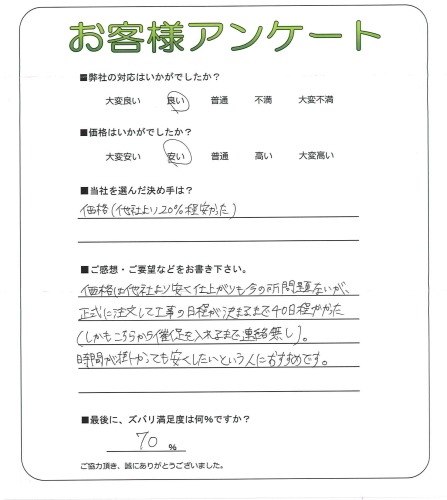 お客様アンケート
■弊社の対応はいかがでしたか？
大変良い 良い 普通 不満 大変不満
■価格はいかがでしたか？
大変安い 安い 普通 高い 大変高い
■当社を選んだ決め手は？
価格(他社より20%程安かった)
■ご感想・ご要望などをお書き下さい。
価格は他社より安く仕上がりも今の所問題ないが、
正式に注文して工事の日程が決まるまで40日程かかった
(しかもこちらから催促を入れるまで連絡無し)。
時間が掛かっても安くしたいという人におすすめです。
■最後に、ズバリ満足度は何%ですか？
70 %
ご協力頂き、誠にありがとうございました。